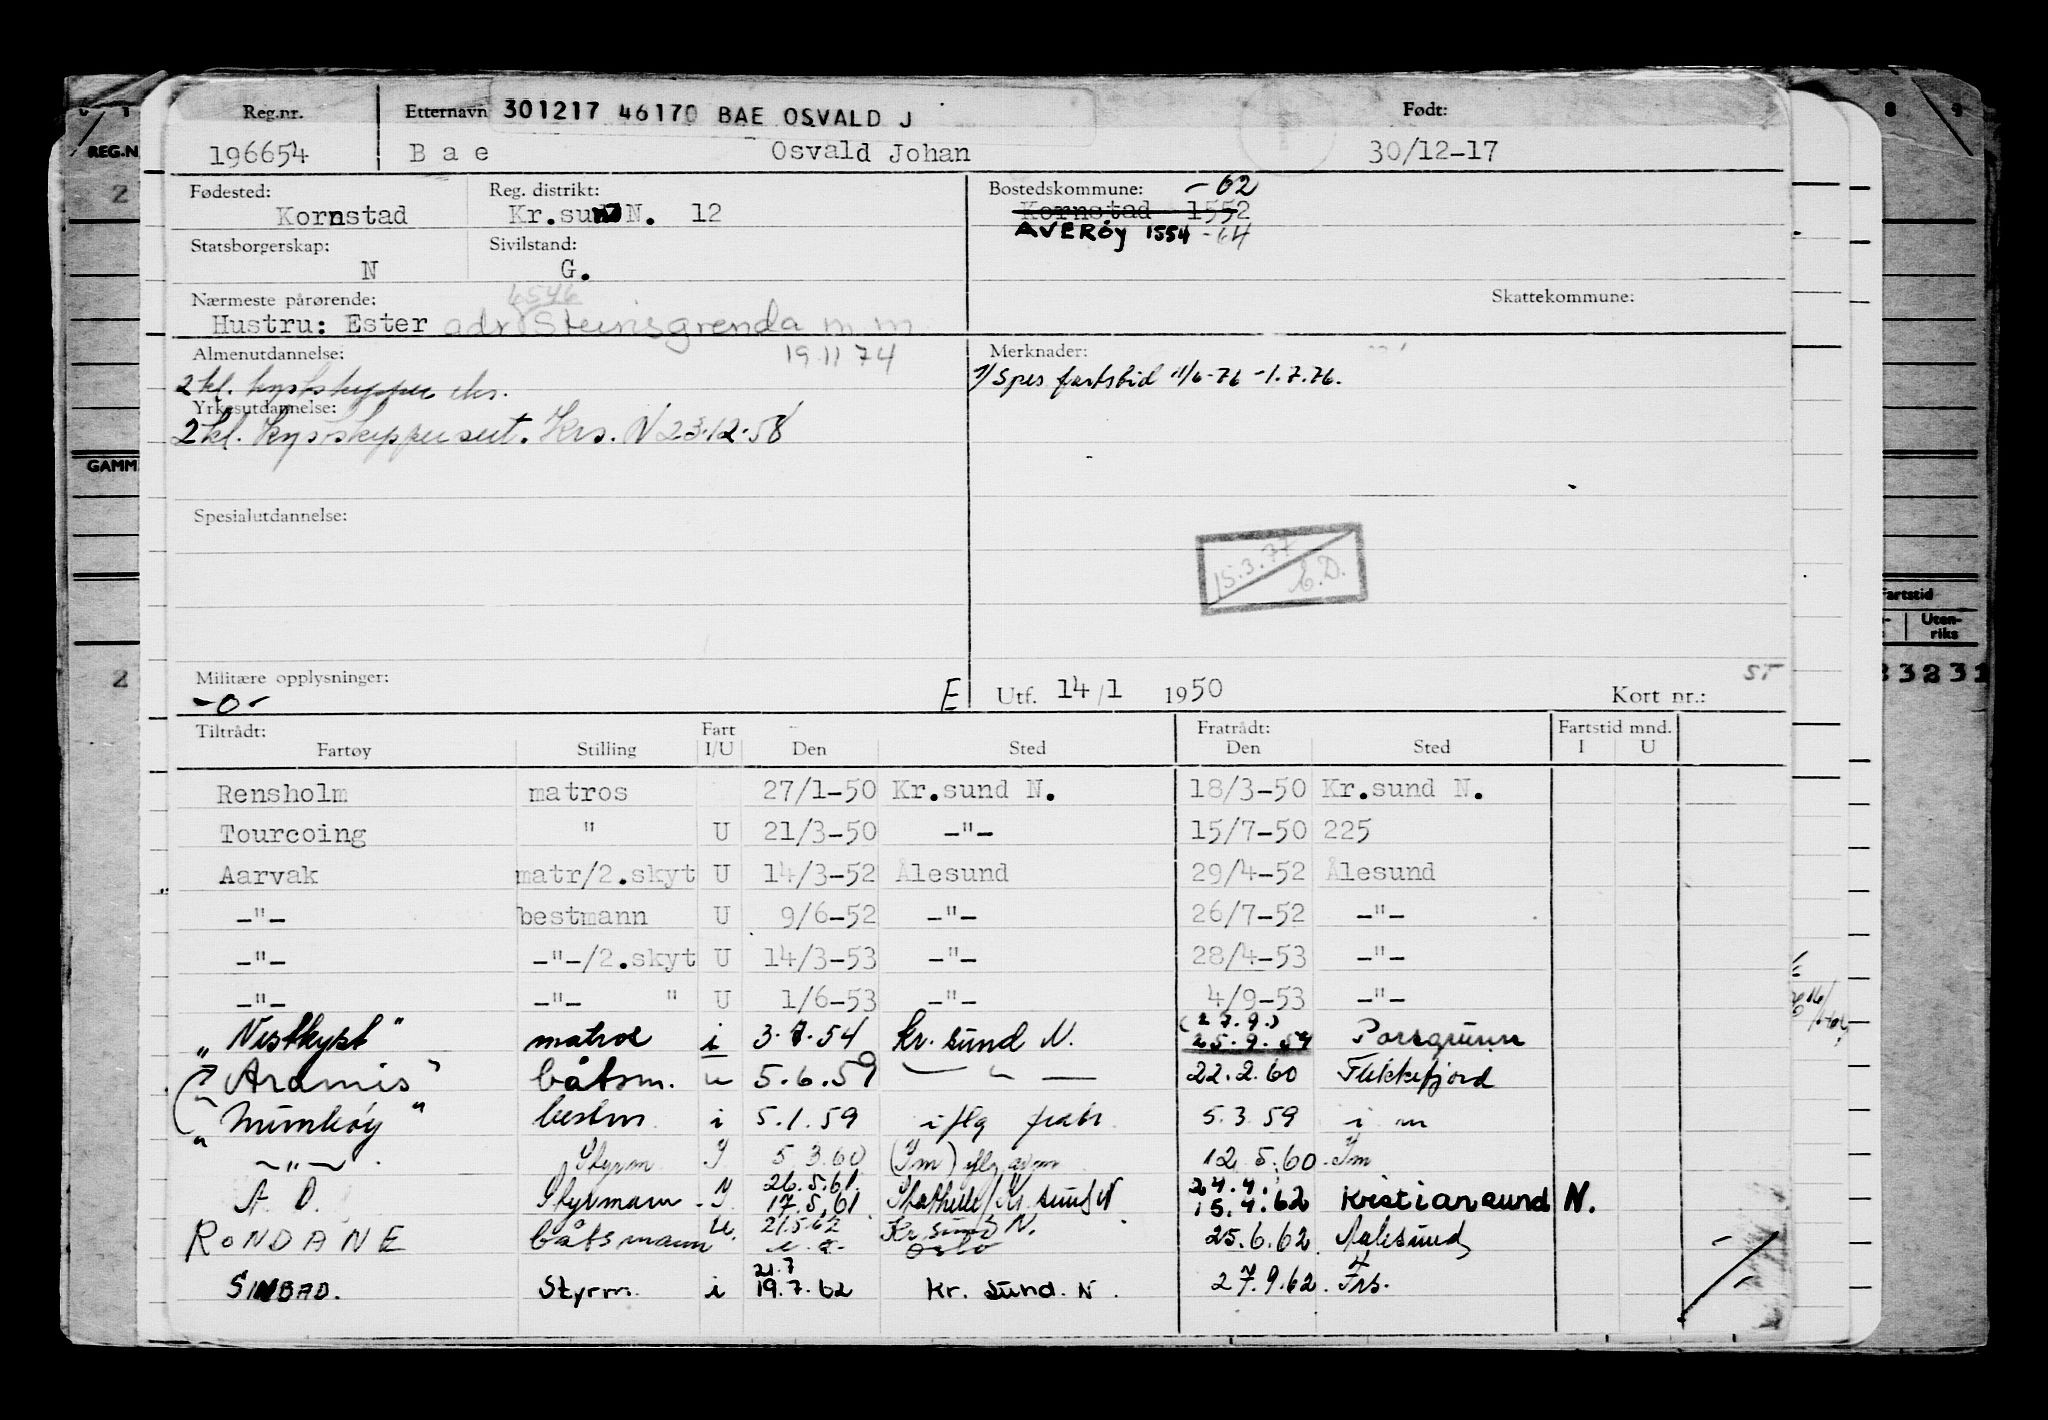 Reg.nr. Etternavn 301217 46170 BAE OSVALD J Født:
196654 Bae Osvald Johan 30/12-17
Fødested: Reg. distrikt: Bostedskommune: -62
Kornstad Kr.sund N. 12 Kornstad 1552
Statsborgerskap: Sivilstand: AVERØY 1554 -64
N G.
Nærmeste pårørende: 6546 Skattekommune:
Hustru: Ester adr Steinsgrenda m m
Almenutdannelse: 19 11 74 Merknader:
2 kl. kystskipper eks. 1/ Spes fartstid 11/6-76 -1.7.76.
Yrkesutdannelse:
2 kl. Kystskippersert. Krs. N 23.12.58
Spesialutdannelse:
15.3.77
Militære opplysninger: ST
-0- E Utf. 14/1 1950 Kort nr.:
Tiltrådt: Fart Fratrådt: Fartstid mnd.
Fartøy Stilling I/U Den Sted Den Sted I U
Rensholm matros 27/1-50 Kr.sund N. 18/3-50 Kr.sund N.
Tourcoing " U 21/3-50 -"- 15/7-50 225
Aarvak matr/2.skyt U 14/3-52 Ålesund 29/4-52 Ålesund
-"- bestmann U 9/6-52 -"- 26/7-52 -"-
-"- -"-/2.skyt U 14/3-53 -"- 28/4-53 -"-
-"- -"- " U 1/6-53 -"- 4/9-53 -"-
(27.9.)
"Vestkyst" matros i 3.7.54 Kr. sund N. 25.9.54 Porsgrunn
"Aramis" båtsm. u 5.6.59 — " — 22.2.60 Flekkefjord
"Munkøy" bestm. i 5.1.59 iflg fratr. 5.3.59 i m
-"- Styrm I 5 3.60 (Im) iflg 12.5.60. Im
26.5.61. 24.4.
A. D. Styrmann I 17.5.61 Stathelle/Kr. sund N 15.4.62 Kristiansund N.
RONDANE båtsmann U. 21.5.62 Kr sund N. Oslo 25.6.62. Aalesund
21.7
SINBAD. Styrm. i 19.7.62 Kr. sund. N. 27.9.62. Frs.
REG.N
GAMM.
Fartstid
Uten-riks